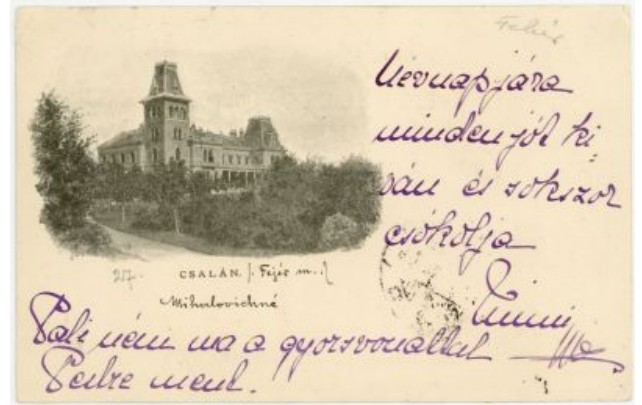 Fehér
Névnapjára
minden jót ki
ván és sokszor
csókolja
Mimi
217.
CSALÁN. /. Fejér m../
Mihalovichné
Pali néni ma a gyorsvonattal
Pestre ment.